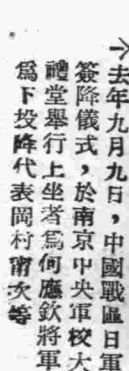 ↑去年九月九日，中國戰區日軍
簽降儀式，於南京中央軍校大
禮堂舉行上坐著爲何應欽將軍
爲下投降代表岡村甯次等